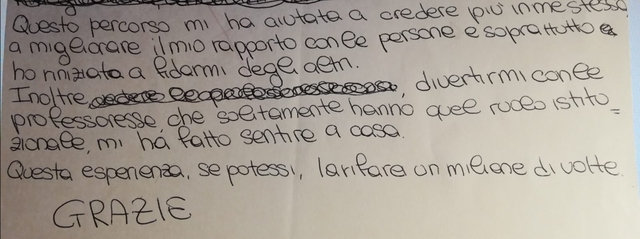 Questo percorso mi ha aiutata a credere più in me stessa
a migliorare il mio rapporto con le persone e soprattutto
ho iniziata a fidarmi degli altri.
Inoltre, divertirmi con le
professoresse, che solitamente hanno quel ruolo istitu=
zionale, mi ha fatto sentire a casa.
Questa esperienza, se potessi, la rifarei un milione di volte.
GRAZIE